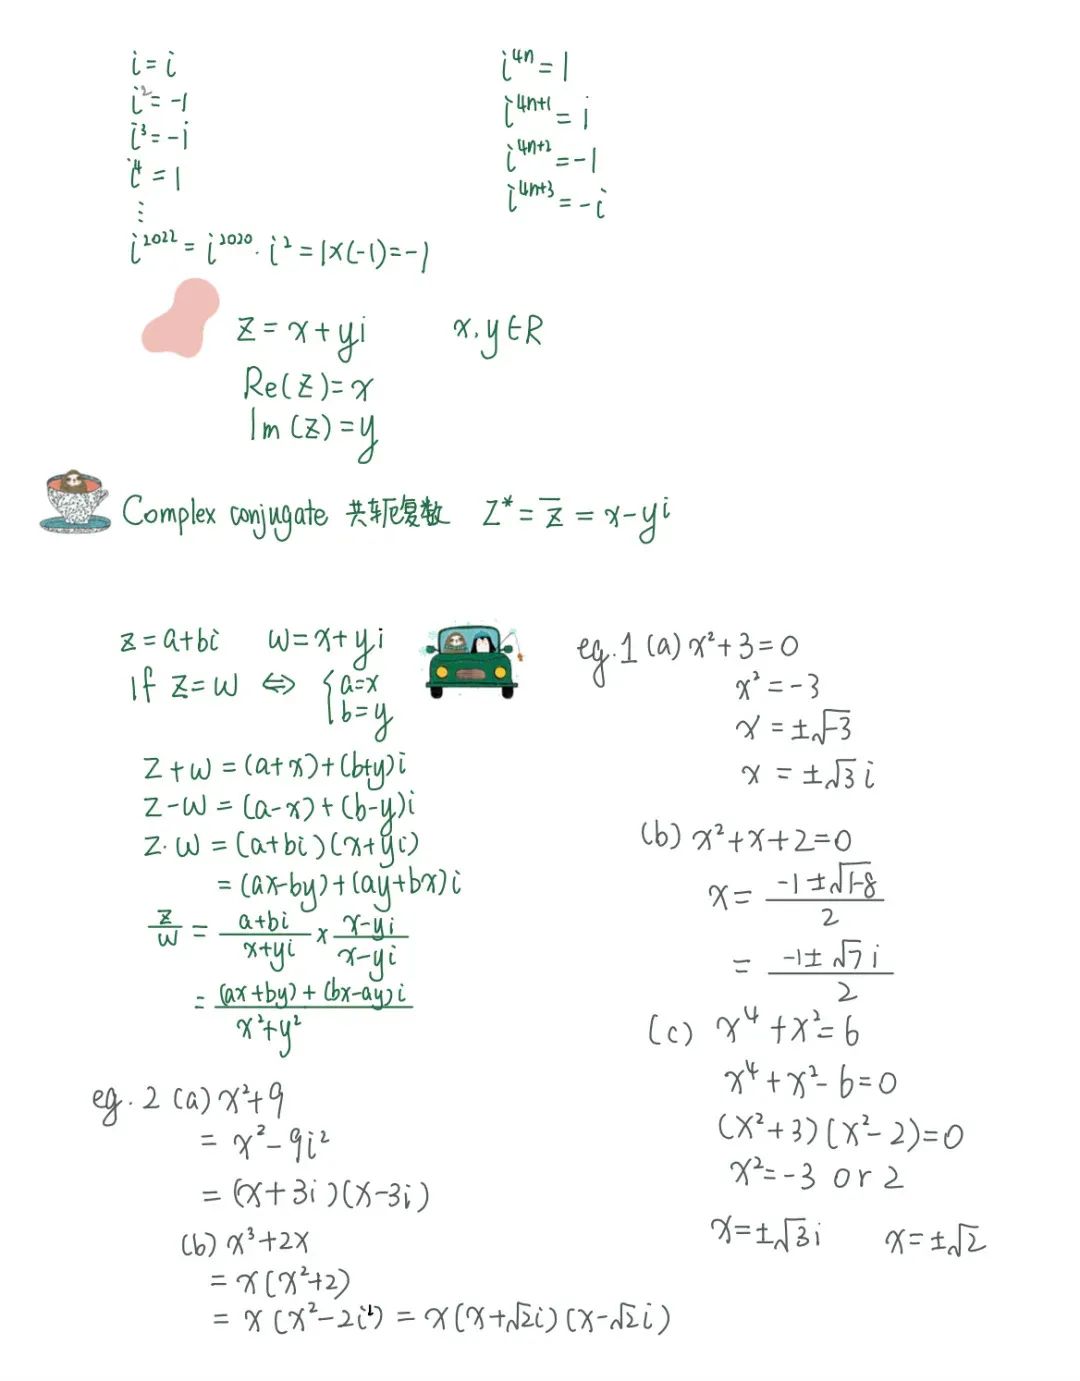 i = i
i² = -1
i³ = -i
i⁴ = 1
⋮
i²⁰²² = i²⁰²⁰ · i² = 1×(-1) = -1
i⁴ⁿ = 1
i⁴ⁿ⁺¹ = i
i⁴ⁿ⁺² = -1
i⁴ⁿ⁺³ = -i
z = x + yi    x, y ∈ R
Re(z) = x
Im(z) = y
Complex conjugate 共轭复数 z* = z̅ = x - yi
z = a+bi    w = x + yi
If z = w ⇔ { a=x
b=y
z + w = (a+x) + (b+y)i
z - w = (a-x) + (b-y)i
z · w = (a+bi)(x+yi)
= (ax-by) + (ay+bx)i
z/w = (a+bi)/(x+yi) × (x-yi)/(x-yi)
= ((ax+by) + (bx-ay)i)/(x²+y²)
eg. 1 (a) x² + 3 = 0
x² = -3
x = ±√-3
x = ±√3 i
(b) x² + x + 2 = 0
x = (-1 ± √1-8)/2
= (-1 ± √7 i)/2
(c) x⁴ + x² = 6
x⁴ + x² - 6 = 0
(x²+3)(x²-2) = 0
x² = -3 or 2
x = ±√3 i    x = ±√2
eg. 2 (a) x² + 9
= x² - 9i²
= (x + 3i)(x - 3i)
(b) x³ + 2x
= x(x²+2)
= x(x² - 2i²) = x(x+√2i)(x-√2i)